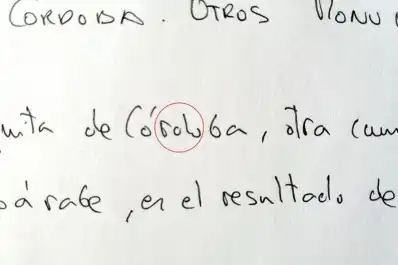 CÓRDOBA. OTROS MONU
uita de Córdoba, otra cum
árabe, en el resultado de